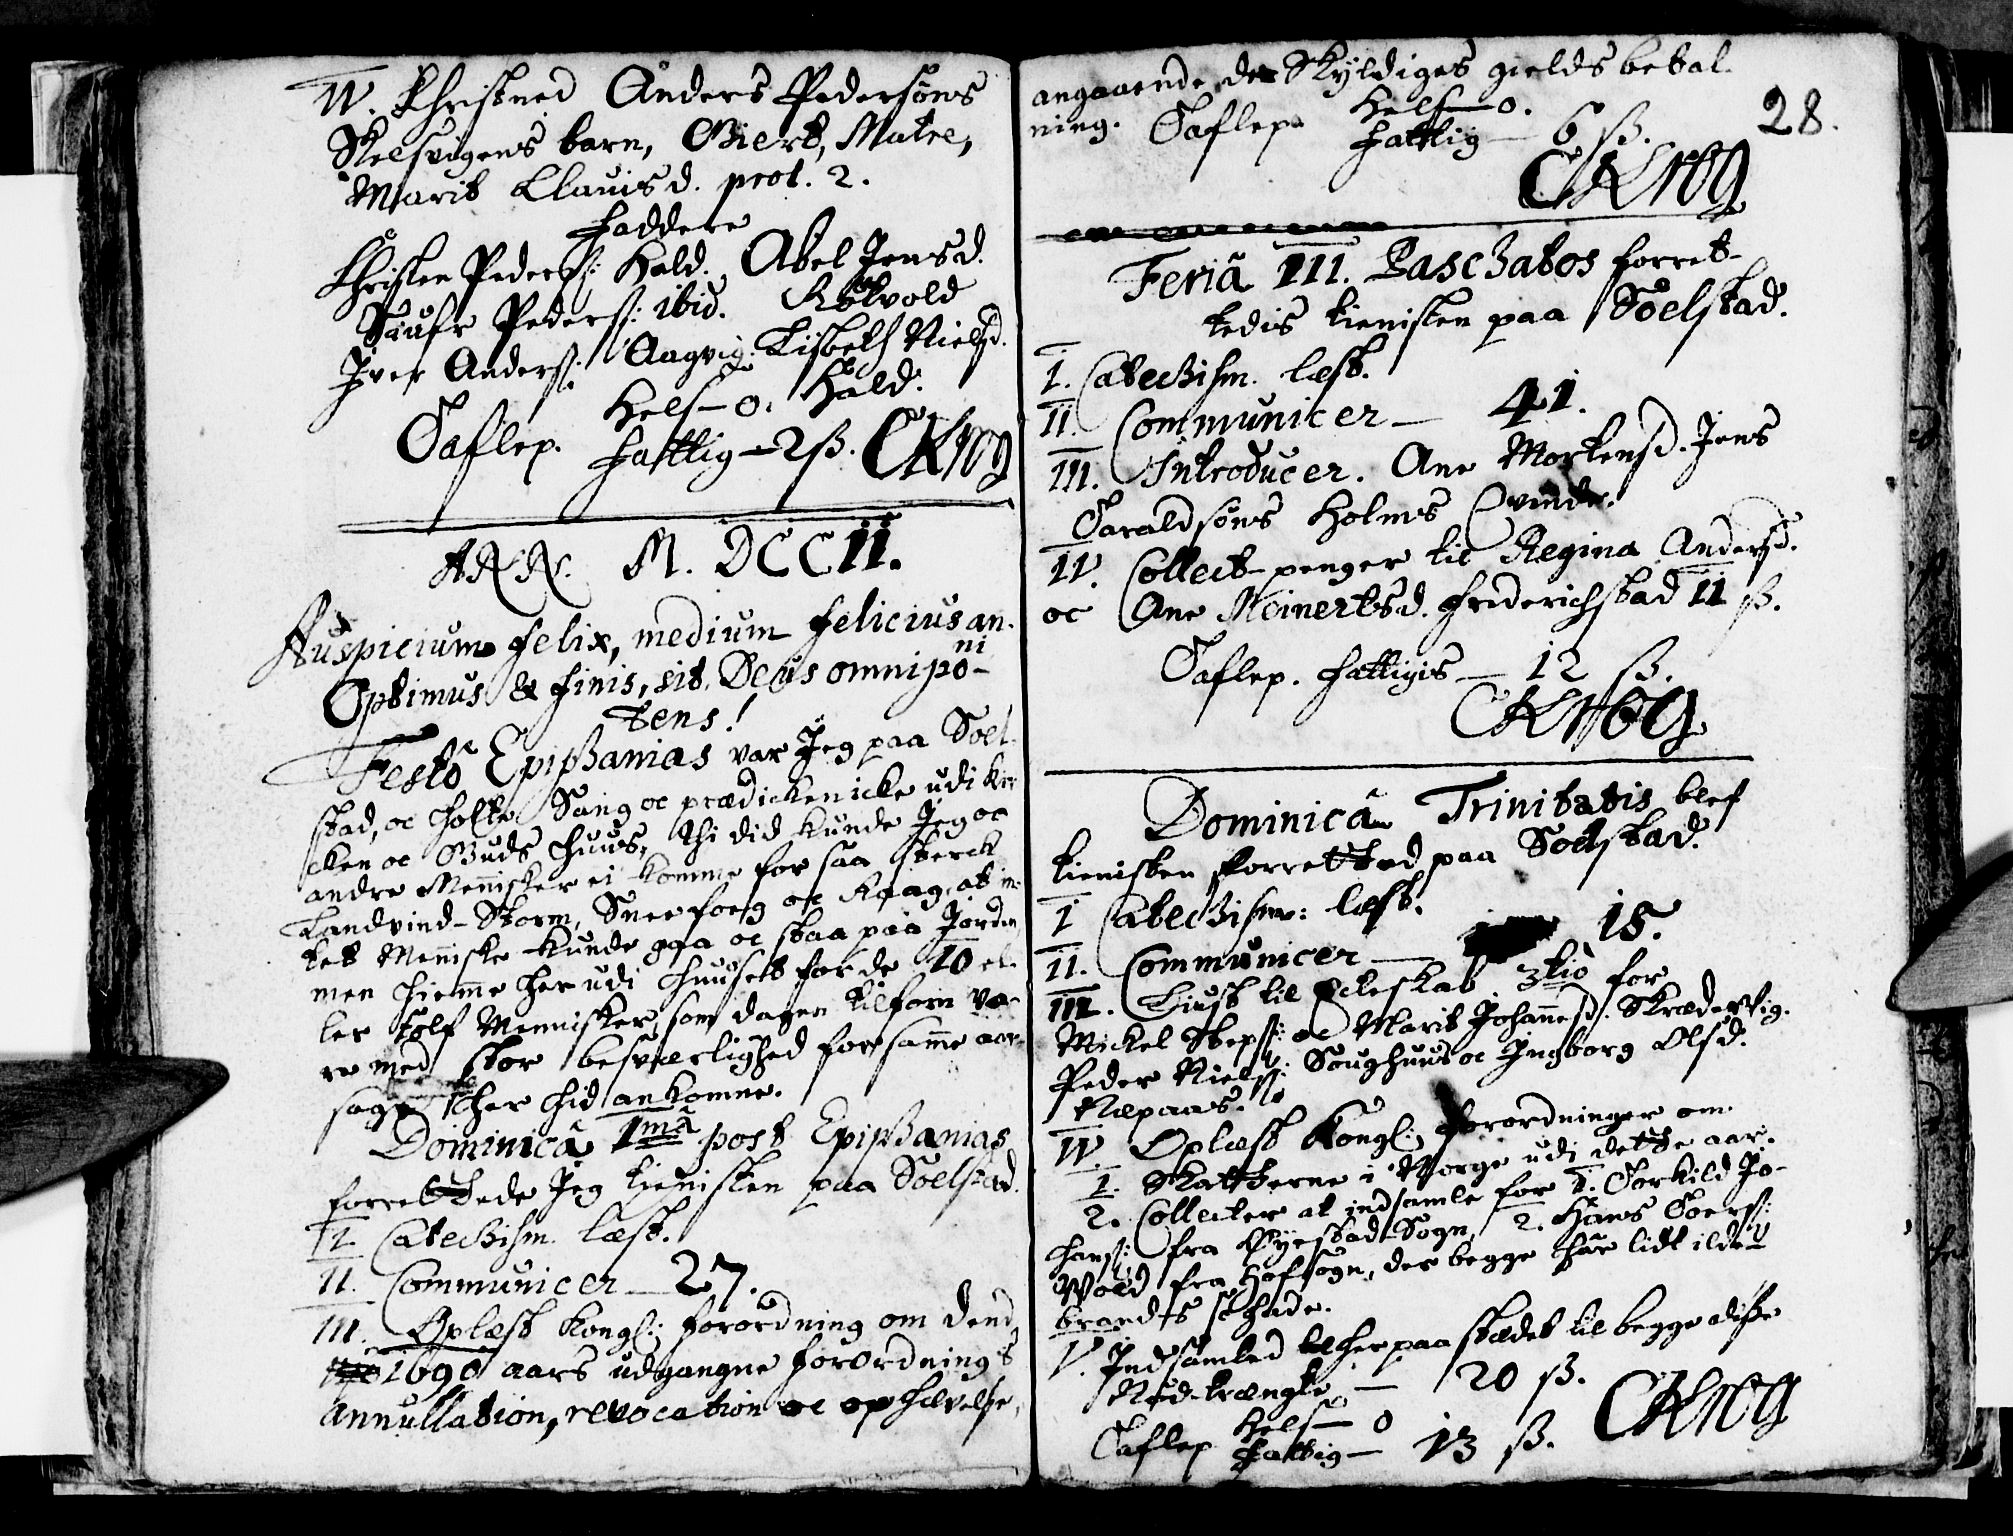 IV. Christned Anders Pedersøns
Skelsvigens barn, Giert, Matre,
Marit Clauisd. prot. 2.
Faddere
Christen Pederß: Hald. Abel Jensd.
Siufr Pederß: ibid. Røtvold
Iver Anderß: Aagvig. Lisbeth Nielsd.
Hels – 0. Hald.
Taflep. Fattig – 2 ß. CKrog
ANN. M. DCCII.
Auspicium felix, medium felicius an-
ni
Optimus & finis, sit Deus omnipo-
tens!
Festo Epiphanias var Jeg paa Soel-
stad, oc holte Sang oc prædicken icke udi Kir
cken oc Guds Huus, thi did kunde Jeg oc
andre Meniſker ei komme for saa sterck
Landvind-Storm, Sneefoeg oc Raag, at in-
tet Meniſke kunde gaa oc staa paa Jorden
men hieme her udi huuset for de 10 el-
ler tolf Menniſker, som dagen tilforn va-
re med stor besværlighed for same aar-
sage her hid ankomne.
Dominicâ 1mâ post Epiphanias
forrettede Jeg tieniſten paa Soelstad.
I. Catechism. læst.
II. Communicer – 27.
III. Oplæst Kongl: forordning om dend
1690 aars udgangne forordnings
Annullation, revocation oc ophævelse,
angaaende de Skyldiges gields betal-
ning. Taflep. Hels – 0.
Fattig – 6 ß. 28.
CKrog
Feriâ III. Paschatos forret-
tedis tieniſten paa Soelstad.
I. Catechism. læst.
II. Communicer – 41.
III. Introducer. Ane Mortensd. Jens
Taraldsøns Holms Qvinde.
IV. Collect-penger til Regina Andersd.
oc Ane Meinertsd. Friderichstad 11 ß.
Taflep. Fattigis – 12 ß.
CKrog
Dominicâ Trinitatis blef
tieniſten forretted paa Soelstad.
I Catechism: læst.
II. Communicer – 18.
III. Liust til Ecteskab 3tiò for
Mickel Stepß: oc Marit Johannesd. Skrædervig.
Peder Nielß: Soughuus oc Ingborg Olsd.
Næpaas.
IV. Oplæst Kongl: forordninger om
1. Skatterne i Norge udi dette aar.
2. Collecter at indsamle for 1. Torkild Jo-
hanß: fra Øyestad Sogn, 2. Hans Toerß:
Wold fra Hofsogn, der begge har lidt ilde-
brands schade.
V. Indsamled her paa stædet til begge disse
Nød-trængte – 20 ß.
Taflep Hels – 0
Fattig – 13 ß. CKrog